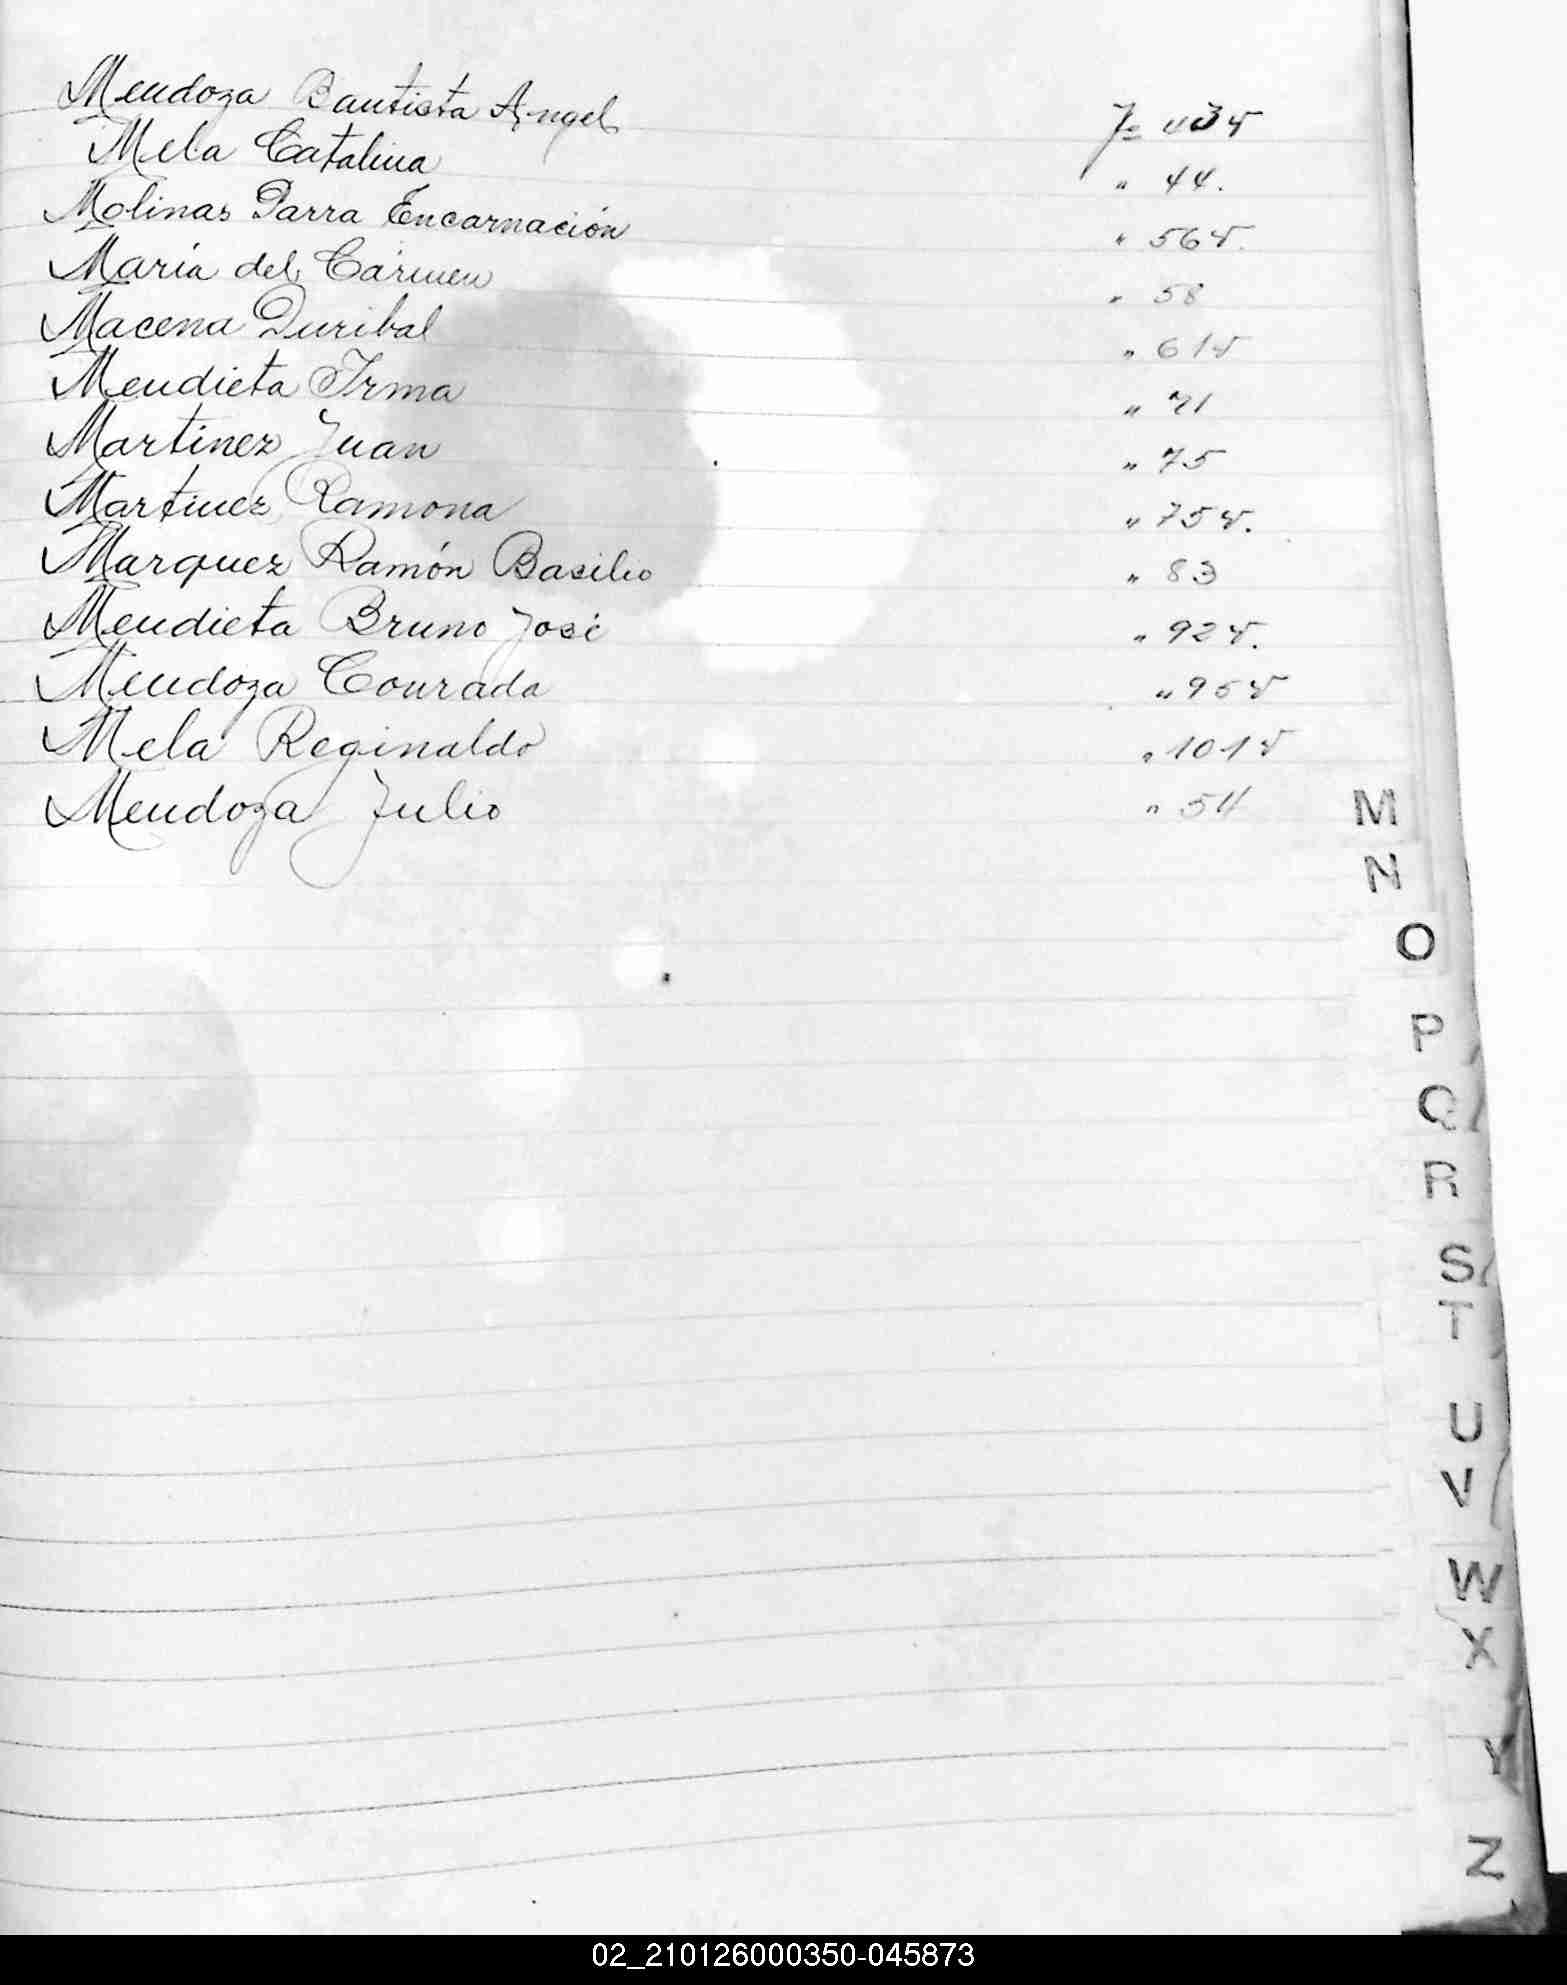 Mendoza Bautista Angel Fº 43v
Mela Catalina " 44.
Molinas Parra Encarnación " 56v.
María del Cármen " 58
Macena Duribal " 61v
Mendieta Irma " 71
Martinez Juan " 75
Martinez Ramona " 75v.
Marquez Ramón Basilio " 83
Mendieta Bruno José " 92v.
Mendoza Conrada " 95v
Mela Reginaldo " 101v
Mendoza Julio " 54
M
N
O
P
Q
R
S
T
U
V
W
X
Y
Z
02_210126000350-045873